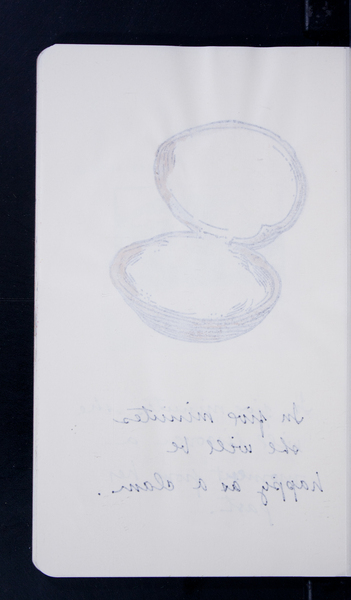 In five minutes
she will be
happy as a clam.